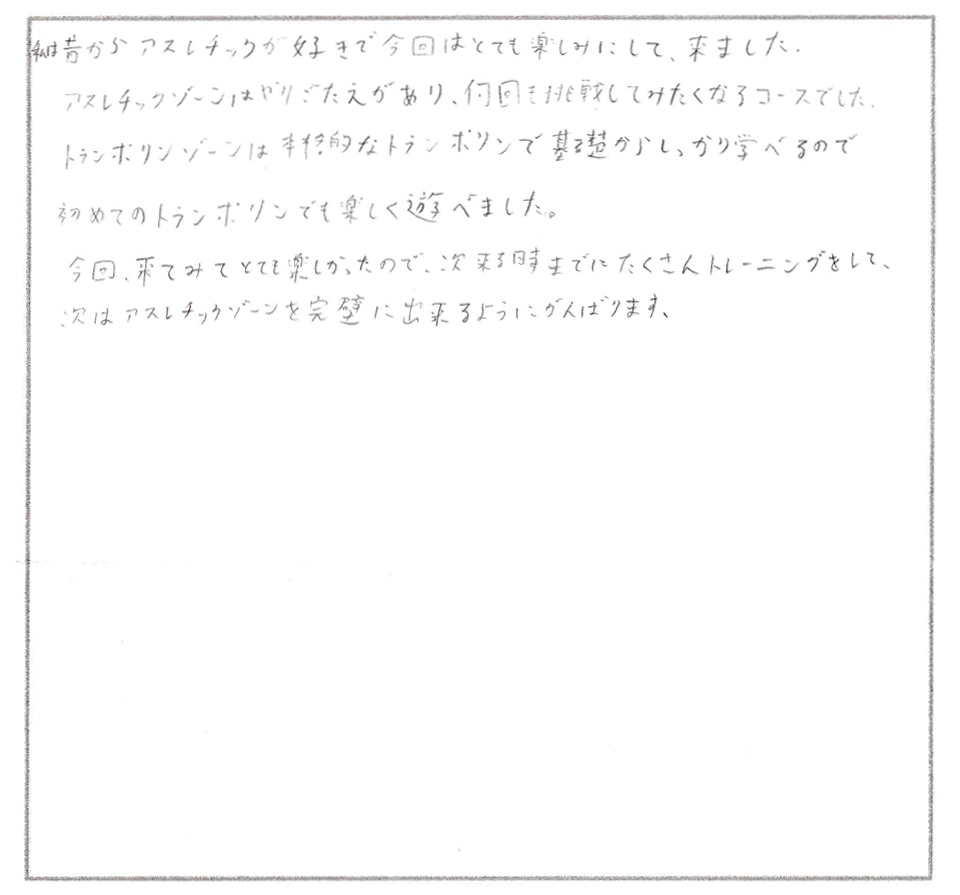 私は昔からアスレチックが好きで今回はとても楽しみにして、来ました.
アスレチックゾーンはやりごたえがあり、何回も挑戦してみたくなるコースでした.
トランポリンゾーンは本格的なトランポリンで基礎からしっかり学べるので
初めてのトランポリンでも楽しく遊べました。
今回、来てみてとても楽しかったので、次来る時までにたくさんトレーニングをして、
次はアスレチックゾーンを完璧に出来るようにがんばります、